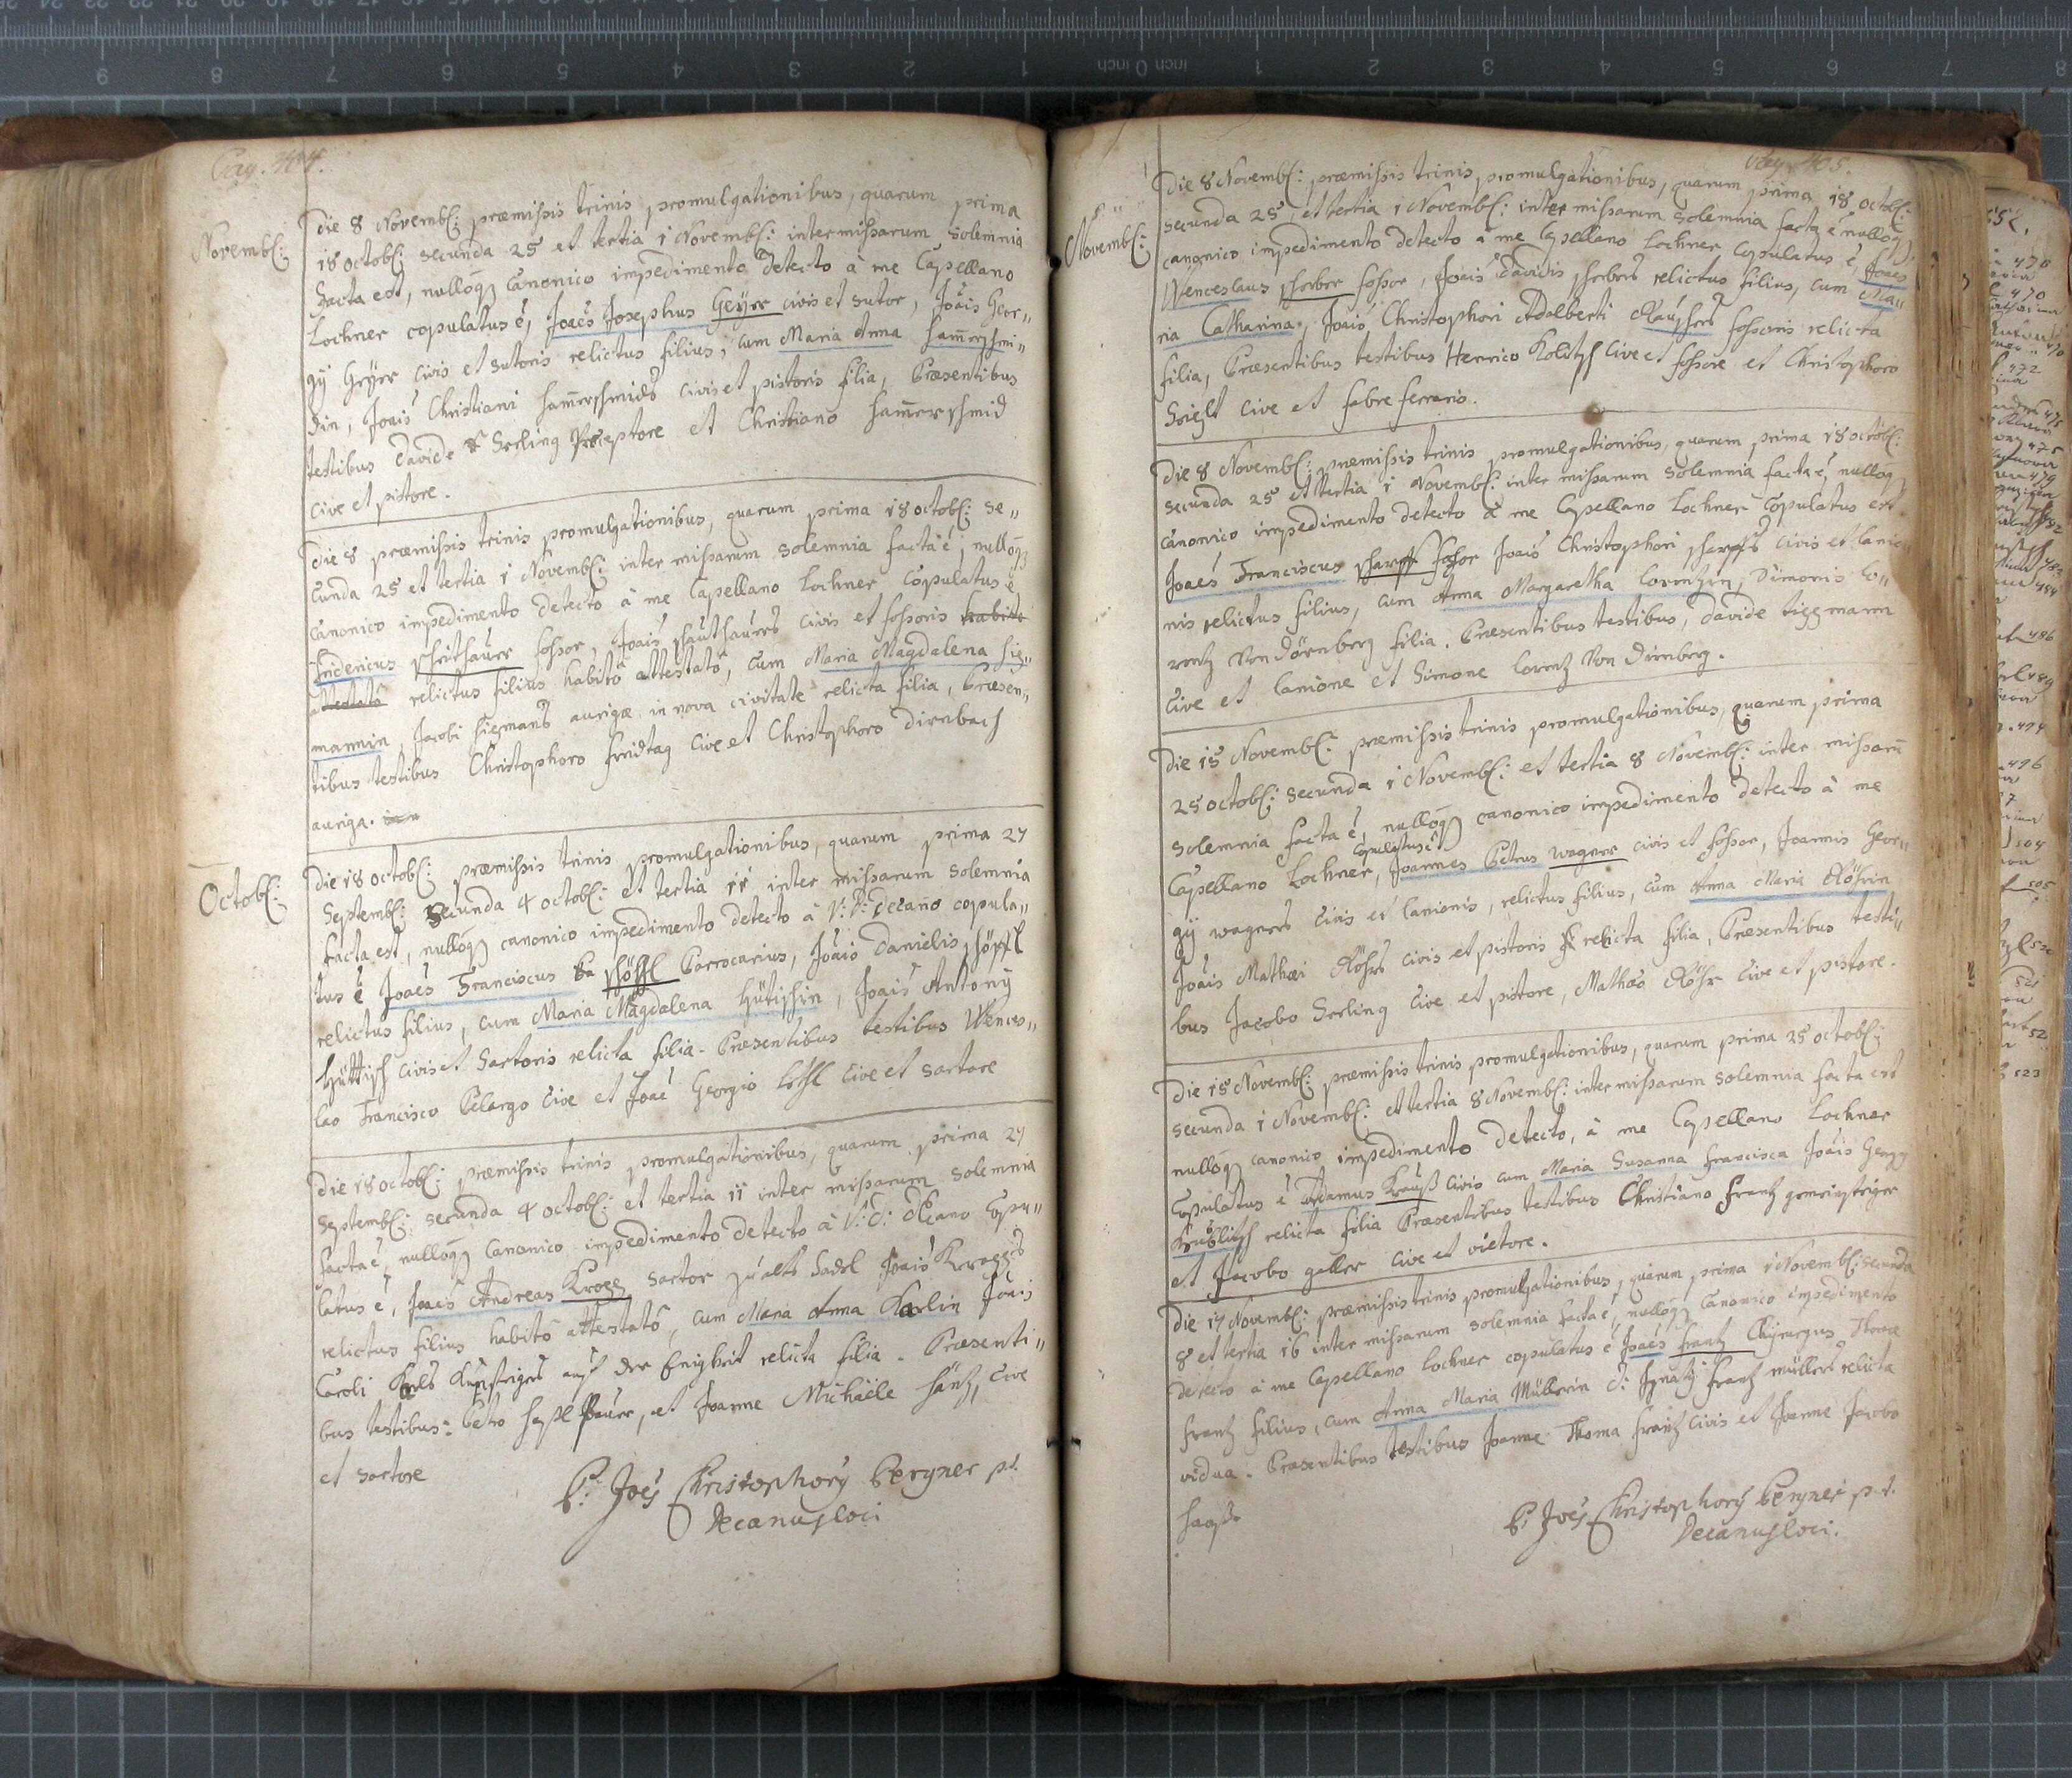 Pag. 404.
Novembr:
Die 8 Novembr: præmissis trinis promulgationibus, quarum prima
18 octobr: secunda 25 et tertia 1 Novembr: inter missarum solemnia
facta est, nulloq canonico impedimento detecto à me Capellano
Lochner copulatus é, Joaēs Josephus Geÿer civis et sutor, Joāis Geor„
gÿ Geÿer civis et sutoris relictus filius, cum Maria Anna Ham̄erschmi„
din, Joāis Christiani ham̄erschmids civis et pistoris filia, Præsentibus
testibus Davide Serling Præceptore et Christiano ham̄erschmid
cive et pistore.
Die 8 præmissis trinis promulgationibus, quarum prima 18 octobr: se„
cunda 25 et tertia 1 Novembr: inter missarum solemnia facta é, nulloq
canonico impedimento detecto à me Capellano Lochner copulatus é
Fridericus fossor, Joāis civis et fossoris habito
attestatô relictus filius habitô attestatô, cum Maria Magdalena
mannin, Jacobi aurigæ in nova civitate relicta filia, Præsen„
tibus testibus Christophoro freidtag cive et Christophoro Dirnbach
auriga.
Octobr:
Die 18 octobr: præmissis trinis promulgationibus, quarum prima 27
Septembr: secunda 4 octobr: et tertia 11 inter missarum solemnia
facta est, nulloq canonico impedimento detecto à V: D: Decano copula„
tus é Joaēs Franciscus Parrocarius, Joāis Danielis
relictus filius, cum Maria Magdalena Hütischin, Joāis Antonÿ
Hüttisch civis et Sartoris relicta filia. Præsentibus testibus Wences„
lao Francisco Pelargo cive et Joāe Georgio cive et sartore
Die 18 octobr: præmissis trinis promulgationibus, quarum prima 27
Septembr: secunda 4 octobr: et tertia 11 inter missarum solemnia
facta é, nulloq canonico impedimento detecto à V: D: Decano Copu„
latus é, Joaēs Andreas Kroez sartor Joāis
relictus filius habitô attestatô, cum Maria Anna Karlin Joāis
Caroli auf der relicta filia. Præsenti„
bus testibus: Petro et Joanne Michaële cive
et sartore
P: Joēs Christophorÿ Bergner p.t.
Decanus loci
Pag. 405.
Novembr:
Die 8 Novembr: præmissis trinis promulgationibus, quarum prima 18 octobr:
secunda 25, et tertia 1 Novembr: inter missarum solemnia facta é nulloq
canonico impedimento detecto à me Capellano Lochner copulatus é, Joaēs
Wenceslaus fossor, Joāis Davidis relictus filius, cum Ma„
ria Catharina, Joāis Christophori Adalberti fossoris relicta
filia, Præsentibus testibus Henrico Kolitsch cive et fossore et Christophoro
cive et fabro ferrario.
Die 8 Novembr: præmissis trinis promulgationibus, quarum prima 18 octobr:
secunda 25 et tertia 1 Novembr: inter missarum solemnia facta é, nulloq
canonico impedimento detecto à me Capellano Lochner copulatus est
Joaēs Franciscus fossor Joāis Christophori civis et lanio„
nis relictus filius, cum Anna Margaretha Lorentzin, Simonis Lo„
rentz von Dörnberg filia. Præsentibus testibus, Davide tiggmann
cive et lanione et Simone Lorentz von Dirnberg.
Die 15 Novembr: præmissis trinis promulgationibus, quarum prima
25 octobr: secunda 1 Novembr: et tertia 8 Novembr: inter missarū
solemnia facta é, nulloq canonico impedimento detecto à me
Capellano Lochner, copulatus é Joannes Petrus Wagner civis et fossor, Joannis Geor„
gÿ wagners civis et lanionis, relictus filius, cum Anna Maria Röhrin
Joāis Mathæi Röhrs civis et pistoris relicta filia, Præsentibus testi„
bus Jacobo Serling cive et pistore, Mathæo Röhr cive et pistore.
Die 15 Novembr: præmissis trinis promulgationibus, quarum prima 25 octobr:
secunda 1 Novembr: et tertia 8 Novembr: inter missarum solemnia facta est
nulloq canonico impedimento detecto, à me Capellano Lochner
Copulatus é Adamus Krauß civis cum Maria Susanna francisca Joāis Georgÿ
relicta filia Præsentibus testibus Christiano frantz
et Jacobo galler cive et vietore.
Die 17 Novembr: præmissis trinis promulgationibus, quarum prima 1 Novembr: secunda
8 et tertia 16 inter missarum solemnia facta é, nulloq canonico impedimento
detecto à me Capellano Lochner copulatus é Joaēs frantz Chÿrurgus Thomæ
frantz filius, cum Anna Maria Müllerin D: Ignatÿ frantz müllers relicta
vidua. Præsentibus testibus Joanne Thoma frantz civis et Joanne Jacobo
P: Joēs Christophorÿ Bergner p.t.
Decanus loci.